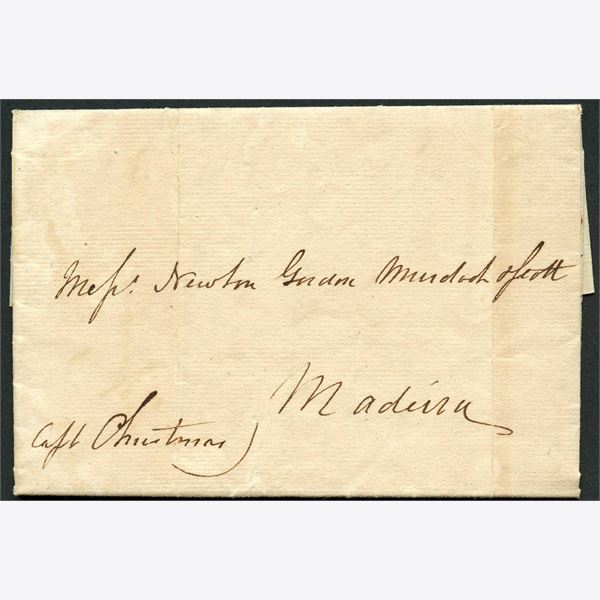 Mess.rs Newton Gordon Murdoch & Scott
Madeira
Capt Christmas